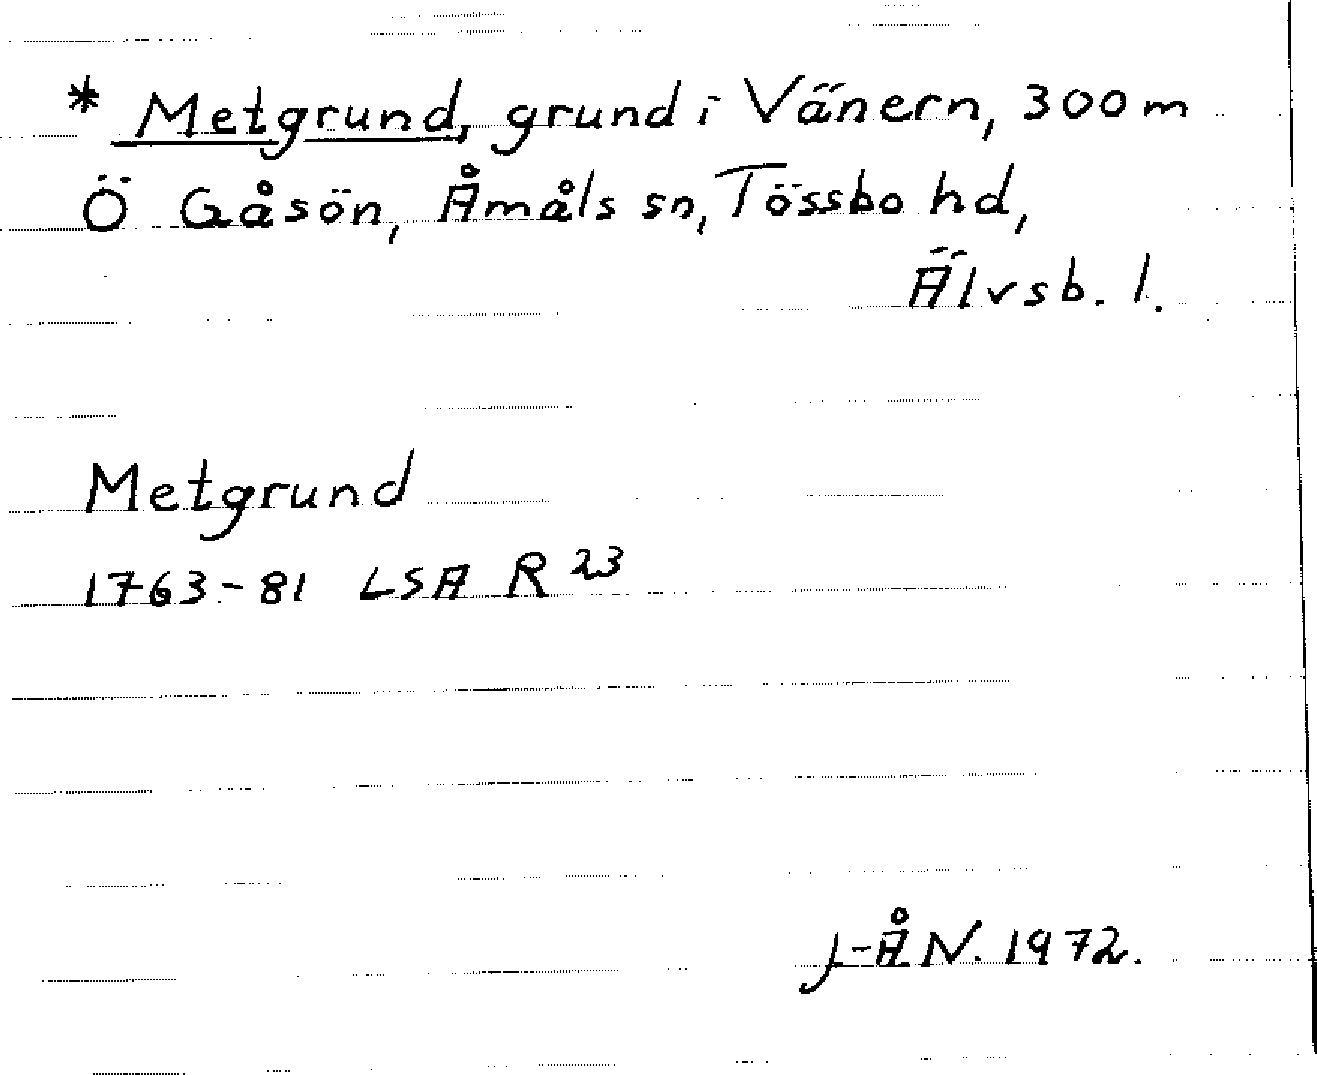 * Metgrund, grund i Vänern, 300 m
Ö Gåsön, Åmåls sn, Tössbo hd,
Älvsb. l.
Metgrund
1763-81 LSA R 23
J-Å N. 1972.